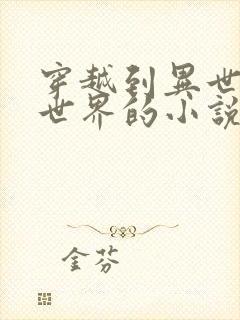 穿越到異世
世界的小說
金芬